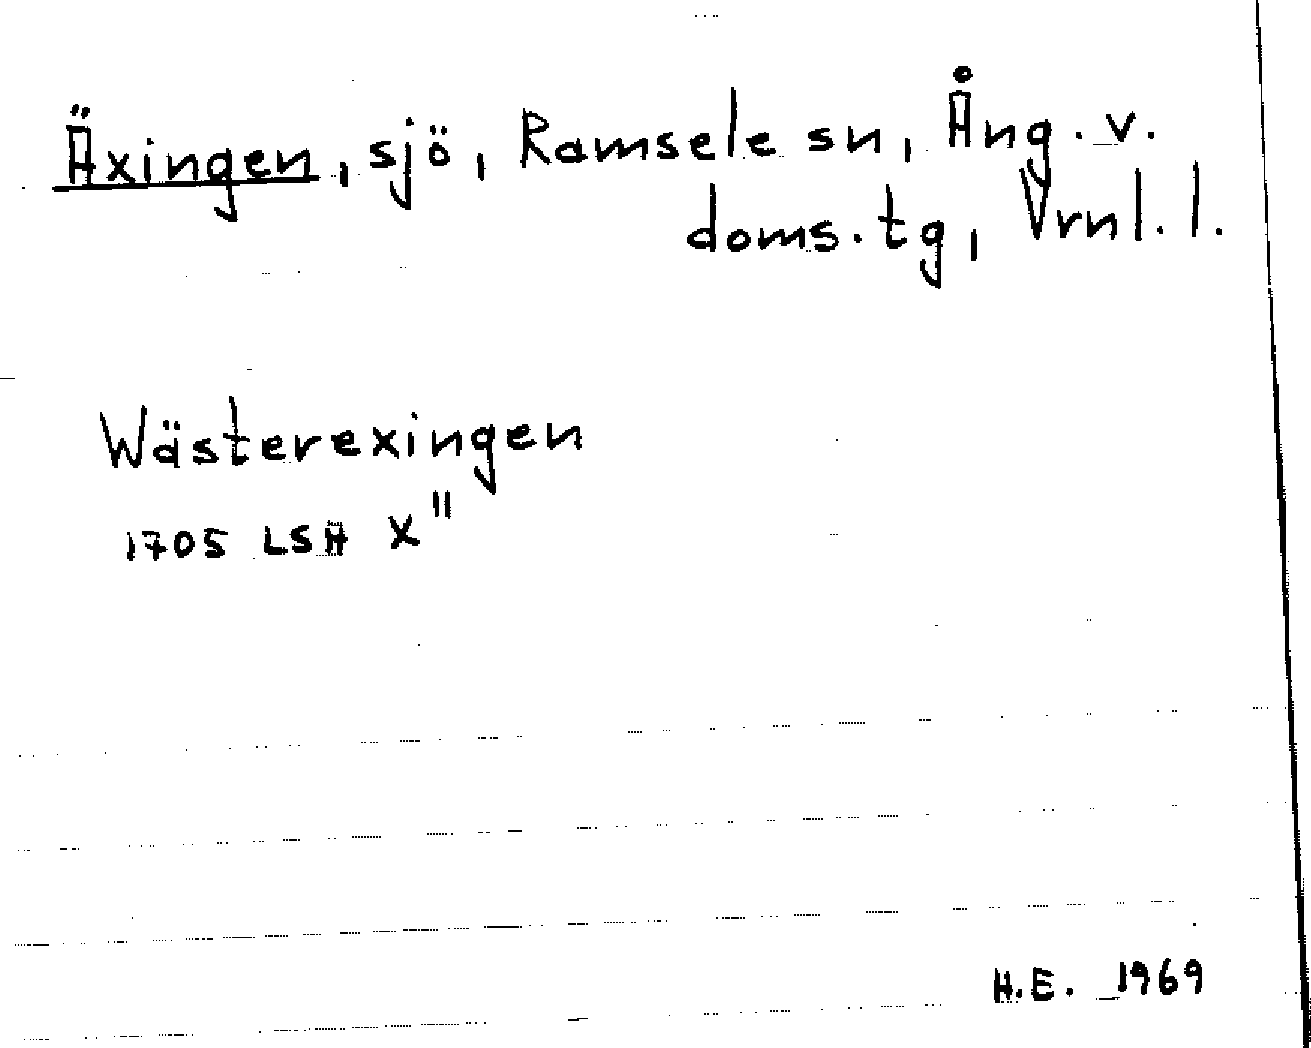 Äxingen, sjö, Ramsele sn, Ång. v.
doms. tg, Vrnl. l.
Wästerexingen
1705 LSA X"
H.E. 1969